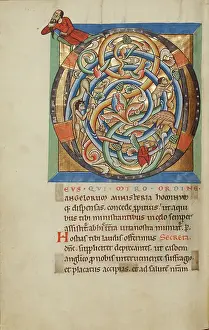 D
EVS QVI MIRO ORDINE
angelorum ministeria hominu
q; dispensas. concede ppitius. ut aqui
bus tibi ministrantibus in celo semper
assistitur. ab his interra nostra
Hostias tibi laudis offerimus Secreta
dne. suppliciter deprecantes. ut easdem
angelico p nobis interueniente suffragio
et placatus accipias. et ad salutem nram